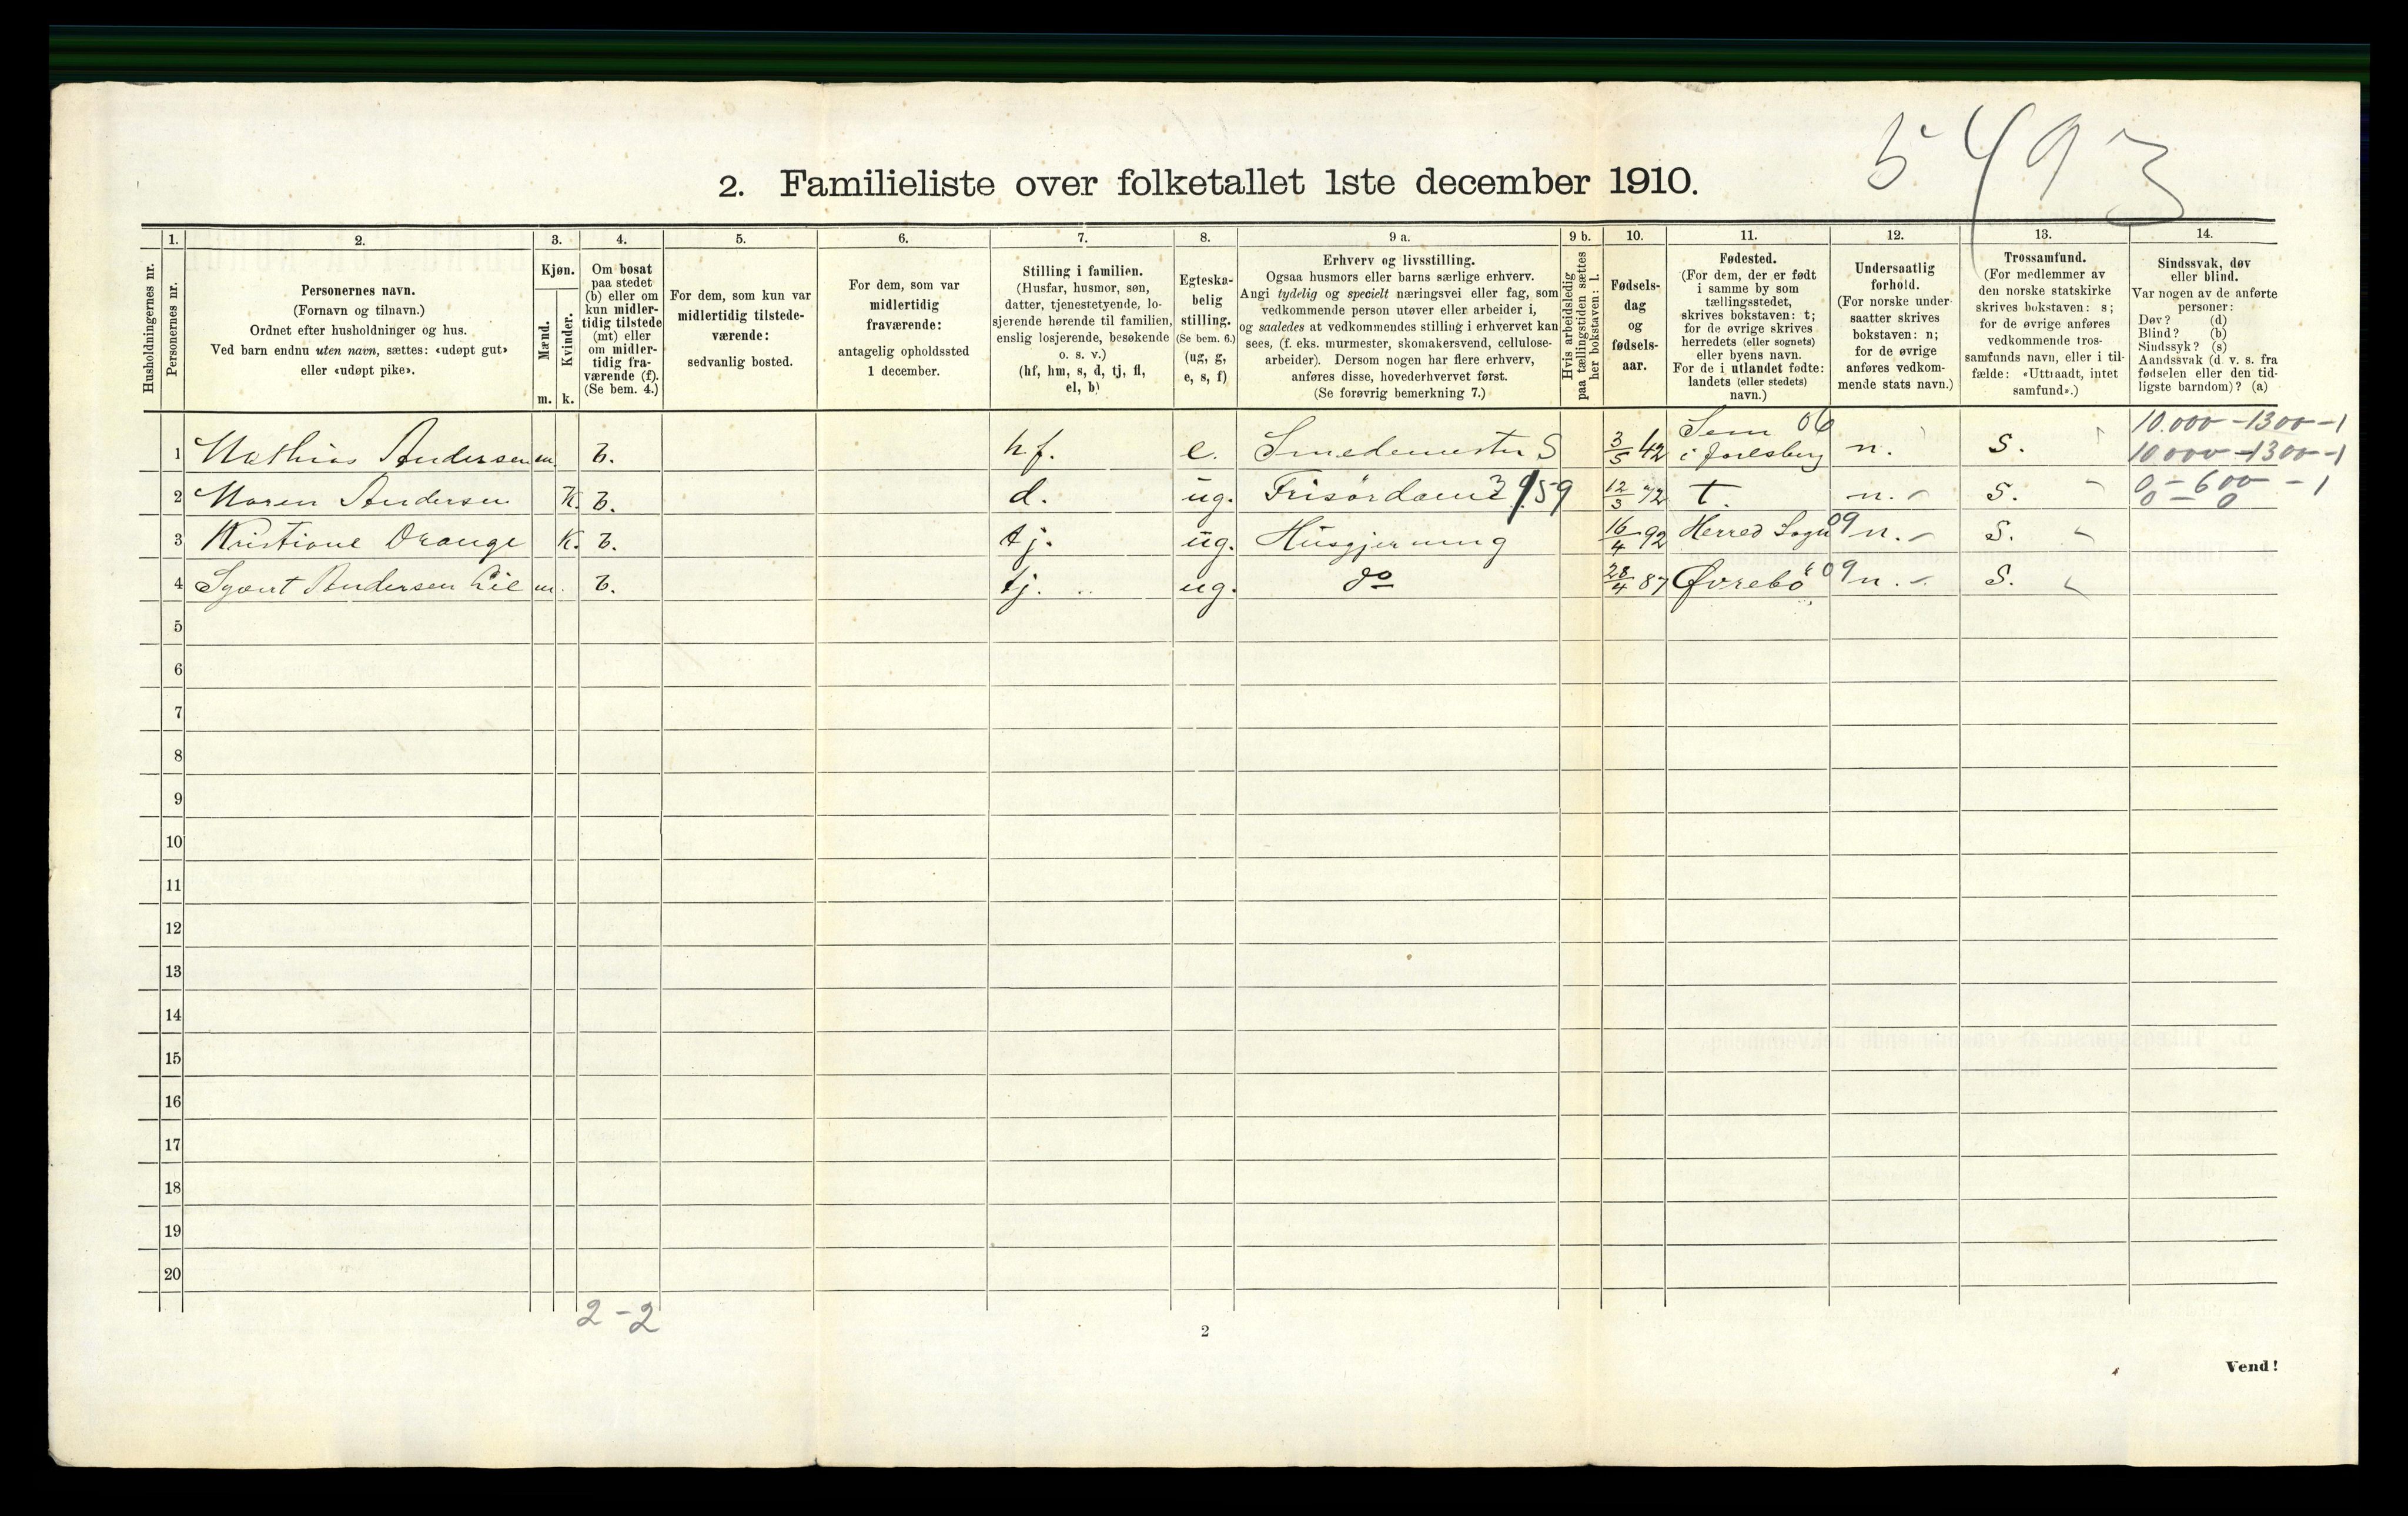 5493
2. Familieliste over folketallet 1ste december 1910.
Husholdningernes nr.
1.
Personernes nr.
2.
Personernes navn.
(Fornavn og tilnavn.)
Ordnet efter husholdninger og hus.
Ved barn endnu uten navn, sættes: «udøpt gut»
eller «udøpt pike».
3.
Kjøn.
Mænd.
Kvinder.
m. k.
4.
Om bosat
paa stedet
(b) eller om
kun midler-
tidig tilstede
(mt) eller
om midler-
tidig fra-
værende (f).
(Se bem. 4.)
5.
For dem, som kun var
midlertidig tilstede-
værende:
sedvanlig bosted.
6.
For dem, som var
midlertidig
fraværende:
antagelig opholdssted
1 december.
7.
Stilling i familien.
(Husfar, husmor, søn,
datter, tjenestetyende, lo-
sjerende hørende til familien,
enslig losjerende, besøkende
o. s. v.)
(hf, hm, s, d, tj, fl,
el, b)
8.
Egteska-
belig
stilling.
(Se bem. 6.)
(ug, g,
e, s, f)
9 a.
Erhverv og livsstilling.
Ogsaa husmors eller barns særlige erhverv.
Angi tydelig og specielt næringsvei eller fag, som
vedkommende person utøver eller arbeider i,
og saaledes at vedkommendes stilling i erhvervet kan
sees, (f. eks. murmester, skomakersvend, cellulose-
arbeider). Dersom nogen har flere erhverv,
anføres disse, hovederhvervet først.
(Se forøvrig bemerkning 7.)
9 b.
Hvis arbeidsledig
paa tællingstiden sættes
her bokstaven: l.
10.
Fødsels-
dag
og
fødsels-
aar.
11.
Fødested.
(For dem, der er født
i samme by som
tællingsstedet,
skrives bokstaven: t;
for de øvrige skrives
herredets (eller sognets)
eller byens navn.
For de i utlandet fødte:
landets (eller stedets)
navn.)
12.
Undersaatlig
forhold.
(For norske under-
saatter skrives
bokstaven: n;
for de øvrige
anføres vedkom-
mende stats navn.)
13.
Trossamfund.
(For medlemmer av
den norske statskirke
skrives bokstaven: s;
for de øvrige anføres
vedkommende tros-
samfunds navn, eller i til-
fælde: «Uttraadt, intet
samfund».)
14.
Sindssvak, døv
eller blind.
Var nogen av de anførte
personer:
Døv? (d)
Blind? (b)
Sindssyk? (s)
Aandssvak (d. v. s. fra
fødselen eller den tid-
ligste barndom)? (a)
1 Mathias Andersen m. b. hf. e. Smedemester S 3/5 42 Sem 06 i Jarlsberg n. S. 10.000-1300-1
10000-1300-1
2 Maren Andersen K. b. d. ug. Frisördame 12/3 72 t. n. S. 0-600-1
0 - 0
3 Kristiane Drange K. b. tj. ug. Husgjerning 16/4 92 Herred Sogn 09 n. S.
4 Andersen m. b. tj. ug. do 28/4 87 Øvrebö 09 n. S.
5
6
7
8
9
10
11
12
13
14
15
16
17
18
19
20
2-2
2
Vend!